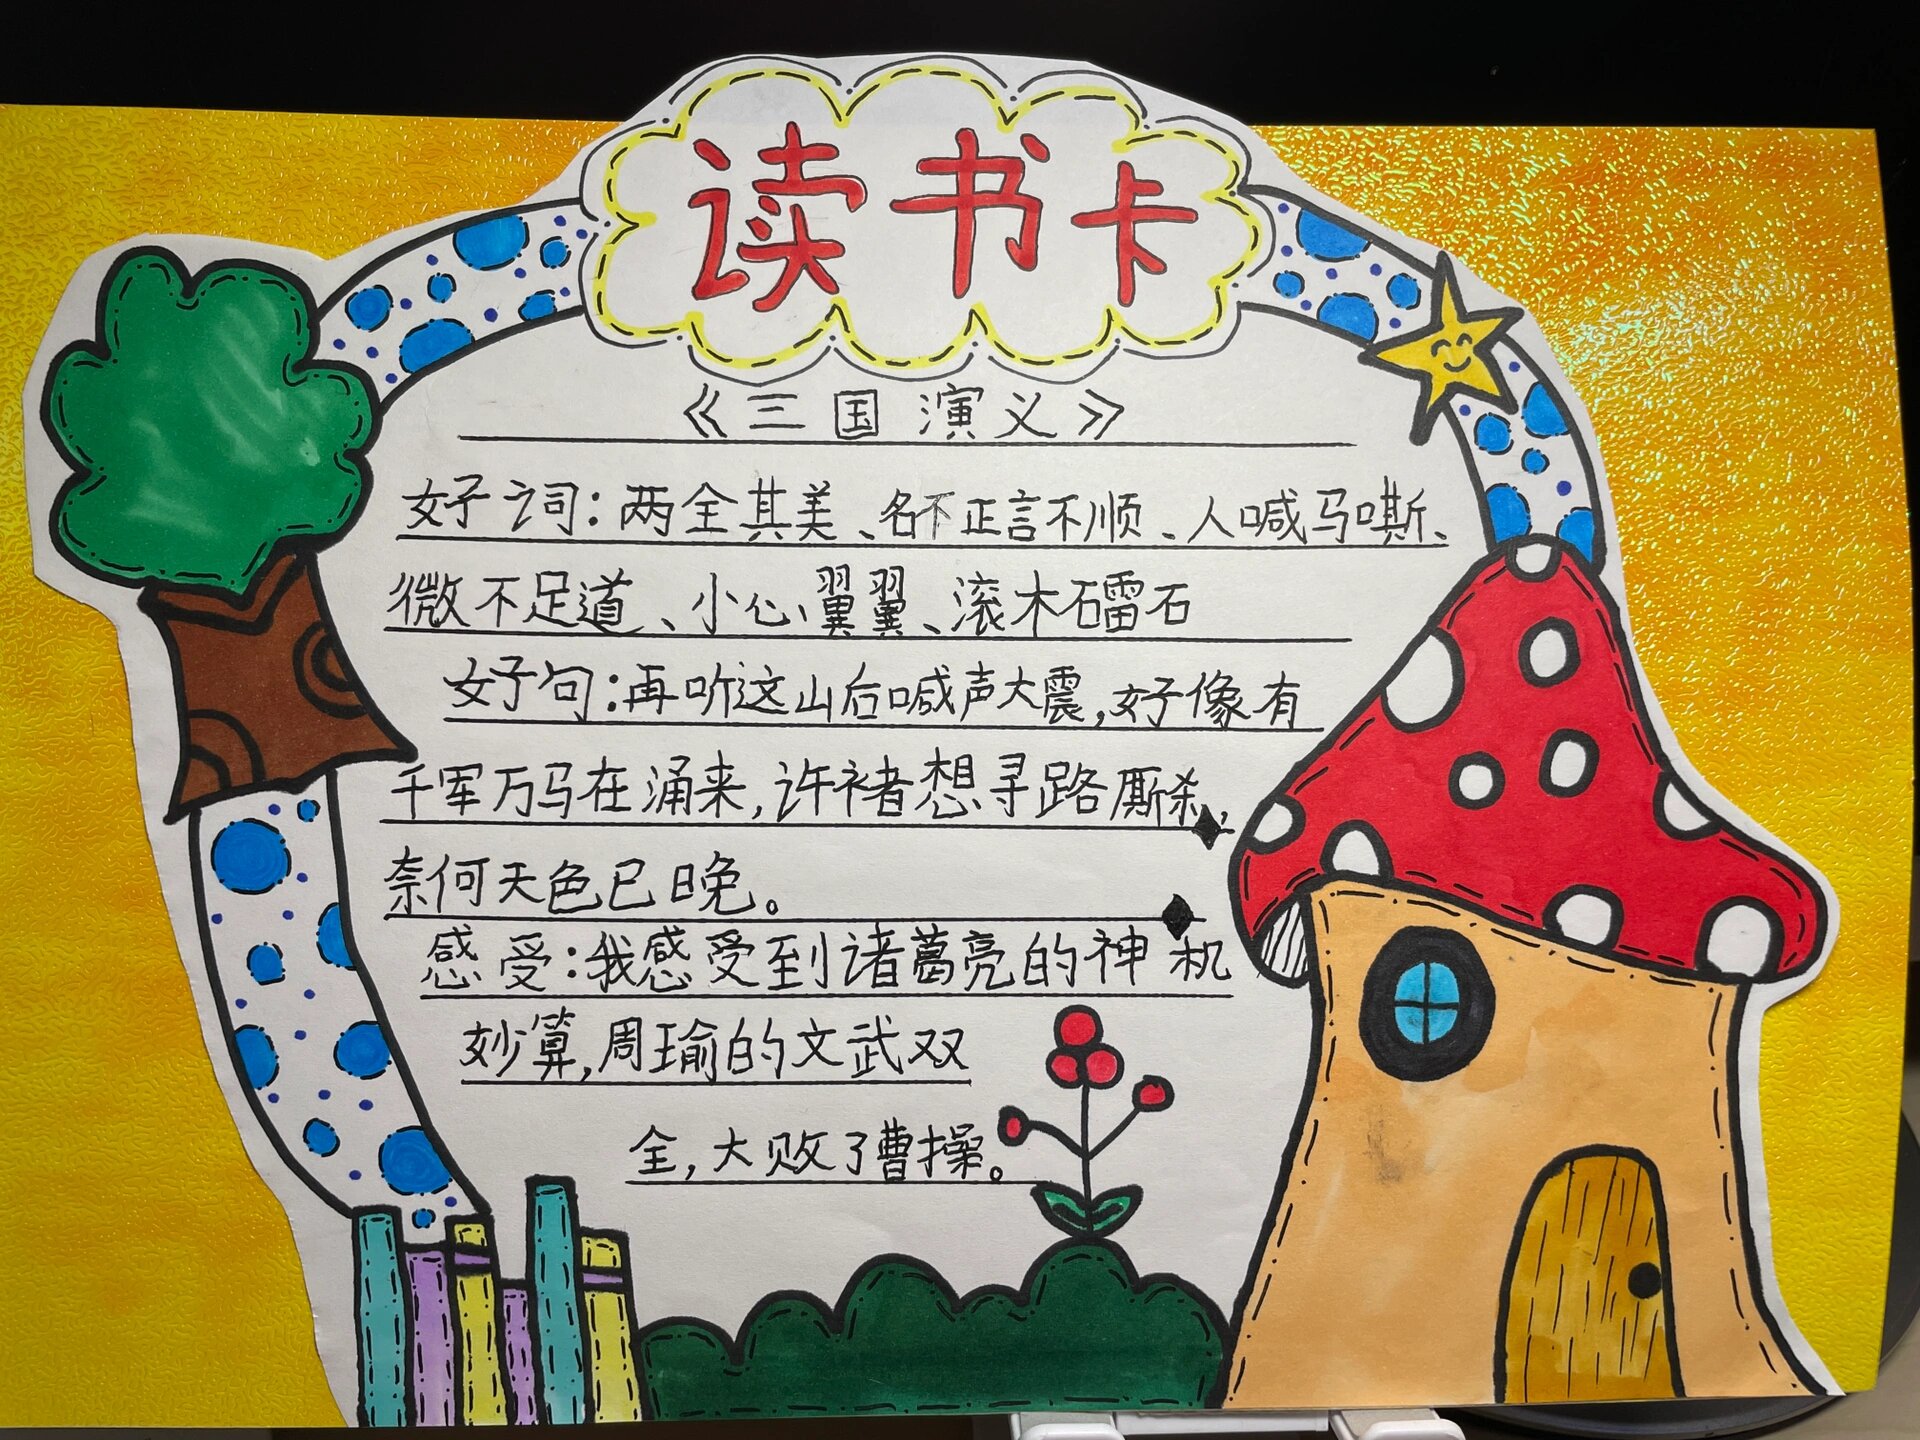 读书卡
《三国演义》
好词：两全其美、名不正言不顺、人喊马嘶、
微不足道、小心翼翼、滚木礌石
好句：再听这山后喊声大震，好像有
千军万马在涌来，许褚想寻路厮杀，
奈何天色已晚。
感受：我感受到诸葛亮的神机
妙算，周瑜的文武双
全，大败了曹操。